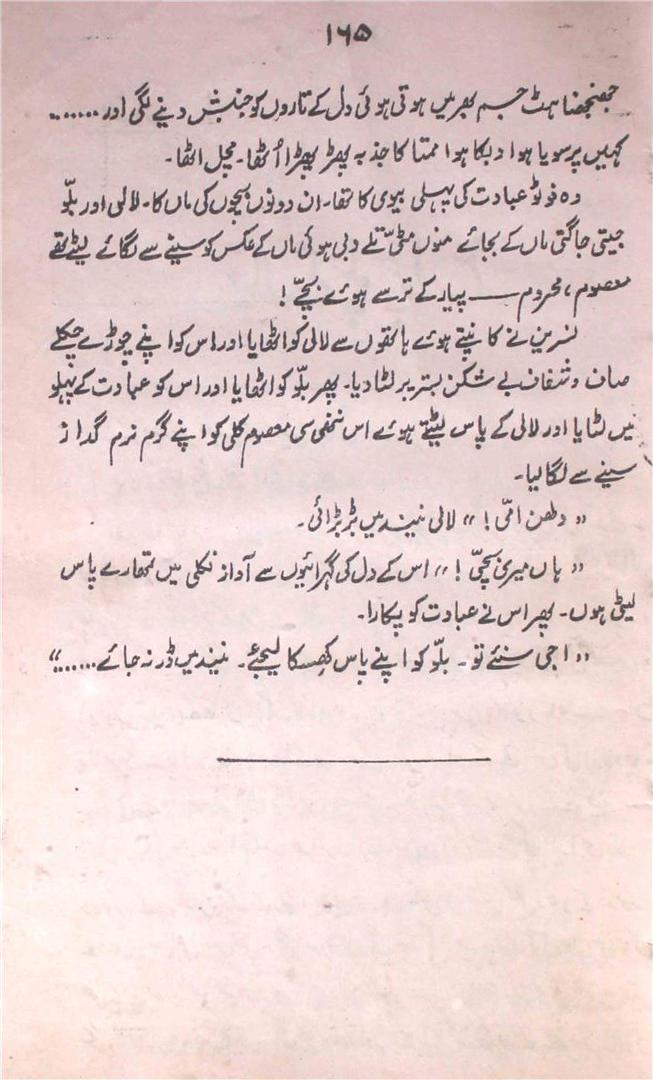 ۱۶۵
جھنجھناہٹ جسم بھر میں ہوتی ہوئی دل کے تاروں کو جنبش دینے لگی اور .......
کہیں پر سویا ہوا دبکا ہوا ممتا کا جذبہ پھڑپھڑا اُٹھا۔ مچل اٹھا۔
وہ فوٹو عبادت کی پہلی بیوی کا تھا۔ ان دونوں بچوں کی ماں کا۔ لالی اور بلّو
جیتی جاگتی ماں کے بجائے منوں مٹی تلے دبی ہوئی ماں کے عکس کو سینے سے لگائے لیٹے تھے
معصوم، محروم —— پیار کے ترسے ہوئے بچّے!
نسرین نے کانپتے ہوئے ہاتھوں سے لالی کو اٹھایا اور اس کو اپنے چوڑے چکلے
صاف و شفاف بے شکن بستر پر لٹا دیا۔ پھر بلّو کو اٹھایا اور اس کو عبادت کے پہلو
میں لٹایا اور لالی کے پاس لیٹتے ہوئے اس ننھی سی معصوم کلی کو اپنے گرم نرم گداز
سینے سے لگا لیا۔
"دلھن امّی!" لالی نیند میں بڑبڑائی۔
"ہاں میری بچّی!" اس کے دل کی گہرائیوں سے آواز نکلی میں تمھارے پاس
لیٹی ہوں۔ پھر اس نے عبادت کو پکارا۔
"اجی سنئے تو۔ بلّو کو اپنے پاس کھسکا لیجئے۔ نیند میں ڈر نہ جائے ......"